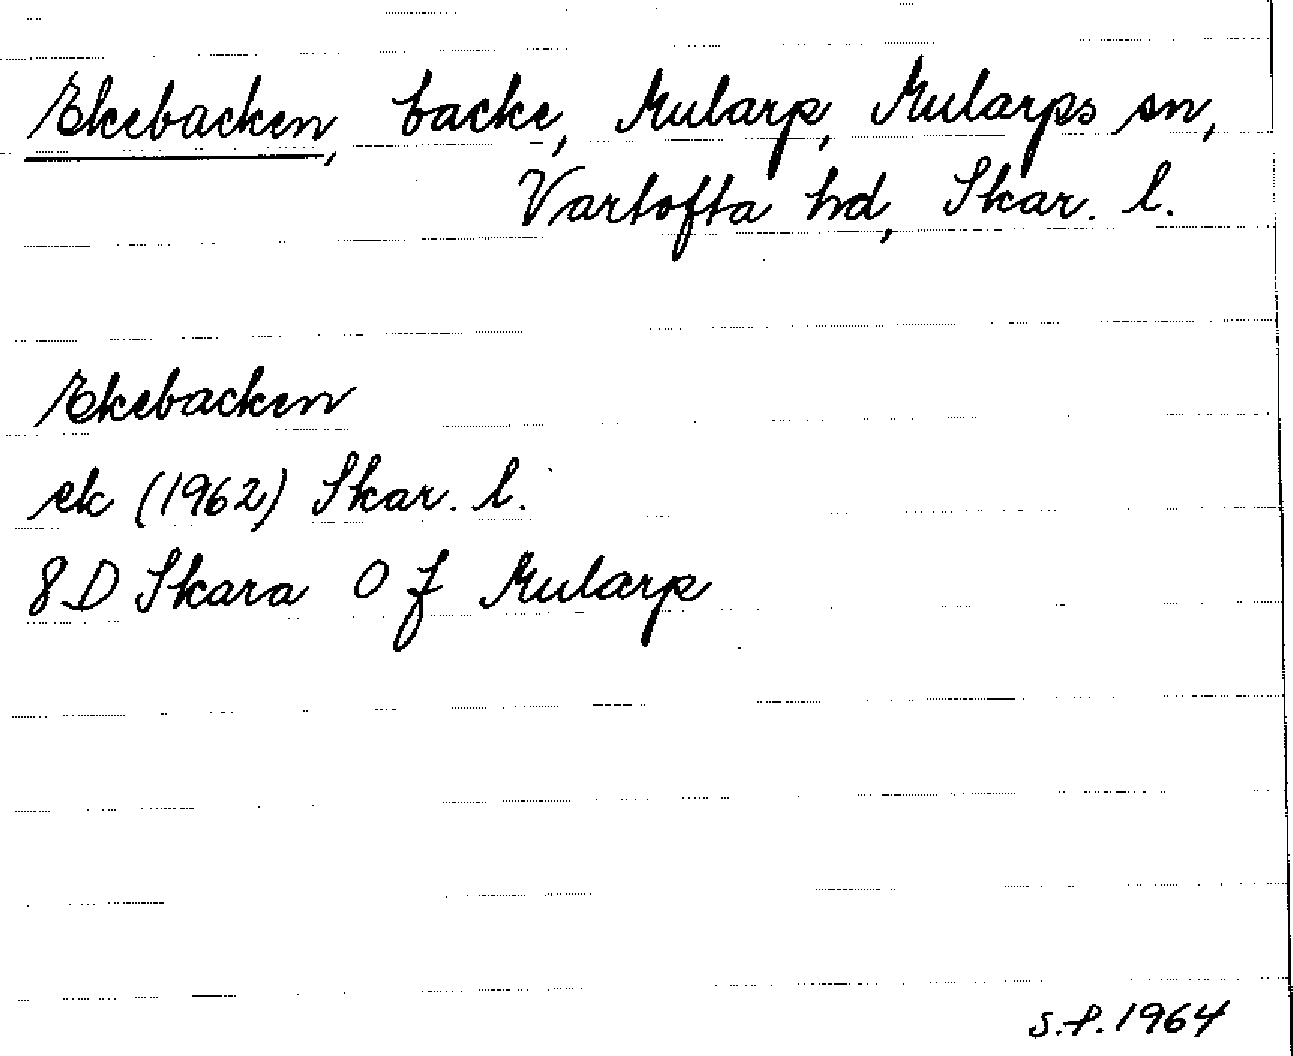 Ekebacken, backe, Mularp, Mularps sn,
Vartofta hd, Skar. l.
Ekebacken
ek (1962) Skar. l.
8 D Skara O f Mularp
S.P. 1964